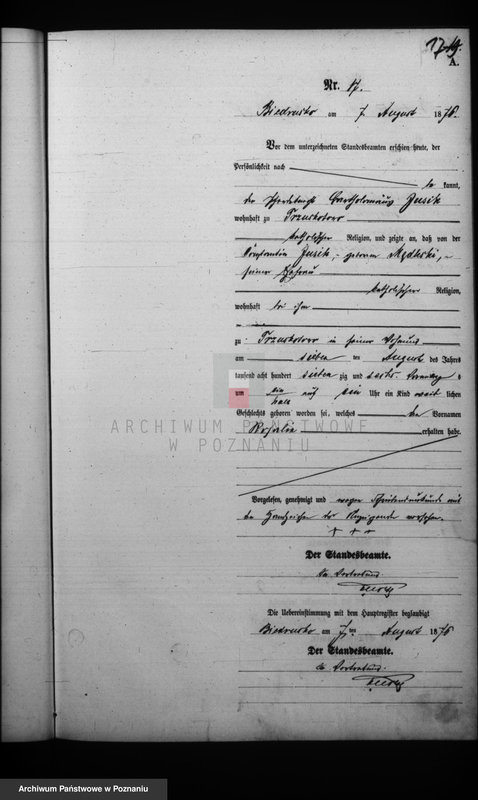 A.
Nr. 17.
Biedrusko am 7 August 1876.
Vor dem unterzeichneten Standesbeamten erschien heute, der
Persönlichkeit nach
kannt,
der Bartholomäus Jusik
wohnhaft zu Trzuskotowo
katholischer Religion, und zeigte an, daß von der
Jusik, geborene
seiner Ehefrau
katholischer Religion,
wohnhaft bei ihm
zu Trzuskotowo in seiner Wohnung
am sieben ten August des Jahres
tausend acht hundert sieben zig und sechs Vormittags
um ein halb auf ein Uhr ein Kind weib lichen
Geschlechts geboren worden sei, welches den Vornamen
Rosalia erhalten habe.
ARCHIWUM PAŃSTWOWE
W POZNANIU
Vorgelesen, genehmigt und wegen Schreibensunkunde mit
den Handzeichen des Anzeigenden versehen.
+ + +
Der Standesbeamte.
In Vertretung.
Die Uebereinstimmung mit dem Hauptregister beglaubigt
Biedrusko am 7 ten August 1876
Der Standesbeamte.
In Vertretung.
Archiwum Państwowe w Poznaniu